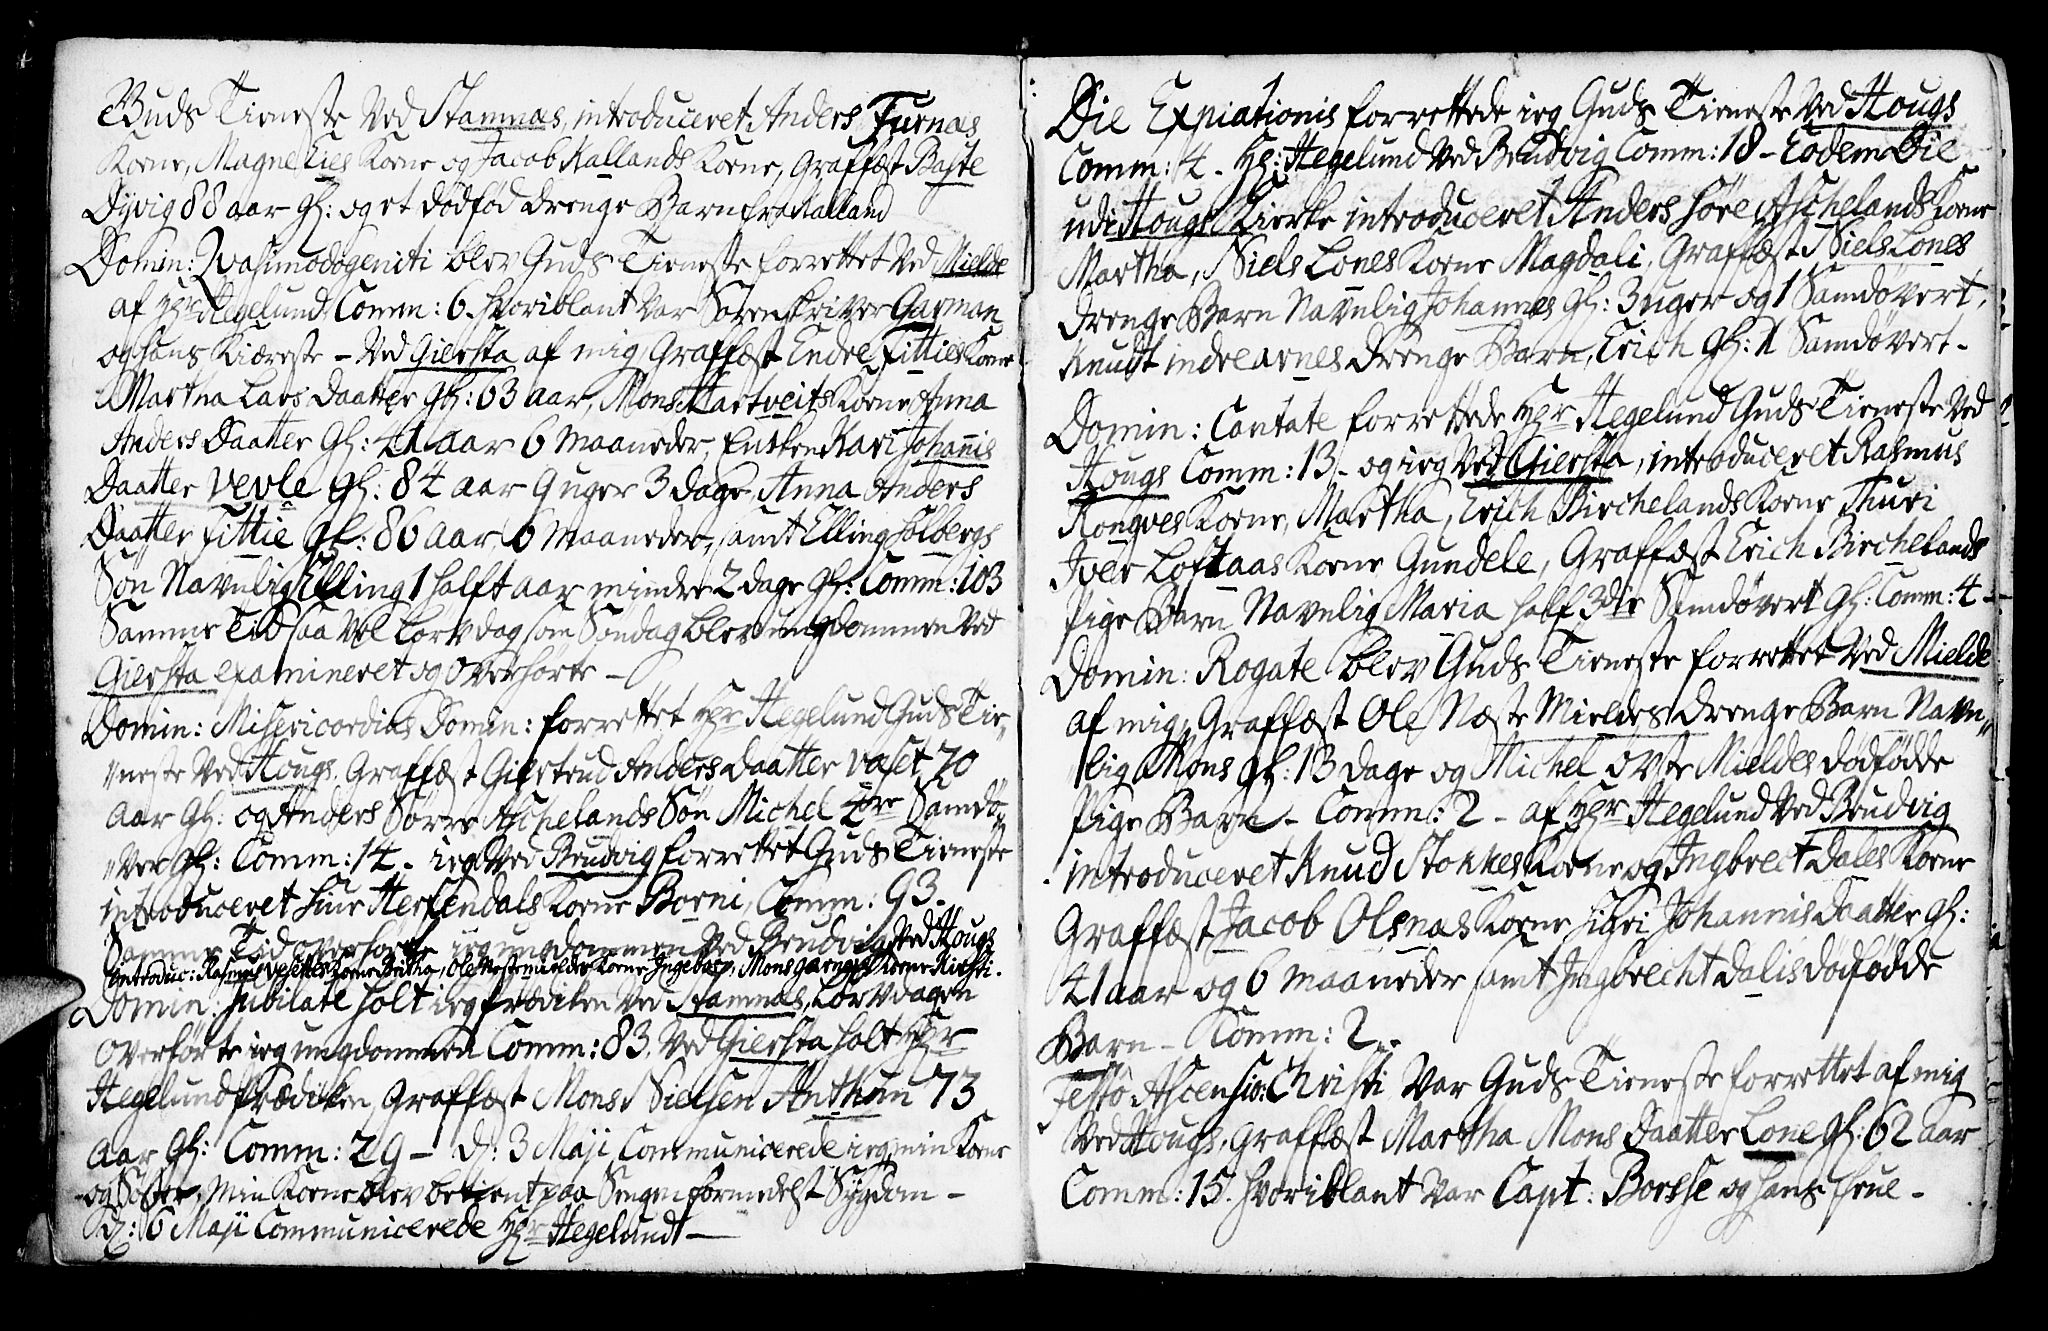 Guds Tieneste ved Stamnæs, introduceret Anders Furnæs
Kone, Magne Eies Kone og Jacob Kallands Kone, Graffæst Baste
Dÿvig 88 aar gl: og et dödföd drenge Barn fra Kalland
Domin: Qvasimodogeniti blev Guds Tieneste forrettet ved Mielde
af Hr Hegelund Comm: 6. hvoriblant var Sorenskriver Garman
og hans Kiæreste - ved Giersta af mig, Graffæst Endre Fitties Kone
Martha Lars Daatter gl: 63 aar, Mons Hartveits Kone Anna
Anders Daatter gl: 41 aar 6 maaneder, Enken Kari Johannis
Daatter Vevle gl: 84 aar 9 uger 3 dage Anna Anders
Daatter Fittie gl: 86 aar, 6 maaneder, samt Elling Holbergs
Sön Navnlig Elling 1 halft aar mindre 2 dage gl: Comm: 103
Samme Tid saa vel Löwdag som Söndag blev ungdommen ved
Giersta examineret og overhörte -
Domin: Misericordias Domin: forrettet Hr Hegelund Guds Tie-
"neste ved Hougs, Graffæst Giertrud Anders Daatter Vaset 70
aar gl: og Anders Sörre Aschelands Sön Michel 4re Samdö-
"ver gl: Comm: 14. ieg ved Brudvig forrettet Guds Tieneste
introduceret Siur Herfendals Kone Borni, Comm: 93.
Samme Tid overhörte ieg ungdommen ved Brudvig, ved Hougs
introduc: Rasmus Vesettes Kone Britha, Ole Nestemieldes Kone Ingeborg, Mons Garnæs Kone Kirsti.
Domin: Jubilate holt ieg prædiken ved Stamnæs, Löwdagen
overhörte ieg ungdommen Comm: 83. ved Giersta holt Hr
Hegelund prædiken, Graffæst Mons Nielsen Anthun 73
aar gl: Comm: 29 - d: 3 Maji Communicerede ieg min Kone
og Söster, min Kone blev betient paa Sengen formedelst Sÿgdom -
d: 6 Maji Communicerede Hr Hegelund -
Die Expiationis forrettede ieg Guds Tieneste ved Hougs
Comm: 4. Hr: Hegelund ved Brudvig Comm: 18 - Eodem Die
udi Hougs Kierke introduceret Anders Söre Aschelands Kone
Martha, Niels Lones Kone Magdali, Graffæst Niels Lones
drenge Barn Navnlig Johannes gl: 3 uger og 1 Samdövert,
Knudt indre arnes drenge Barn, Erich gl: 1 Samdövert -
Domin: Cantate forrettede Hr Hegelund Guds Tieneste ved
Hougs Comm: 13 - og ieg ved Giersta, introduceret Rasmus
Rongves Kone, Martha, Erich Birchelands Kone Thuri
Iver Loftaas Kone Gundele, Graffæst Erich Birchelands
Pige Barn Navnlig Maria half 3die Samdövert gl: Comm: 4 -
Domin: Rogate blev Guds Tieneste forrettet ved Mielde
af mig, Graffæst Ole Næste Mieldes drenge Barn Navn"
"lig Mons gl: 13 dage og Michel övste Mieldes dödfödde
Pige Barn - Comm: 2 - af Hr Hegelund ved Brudvig
introduceret Knud Stokkes Kone og Ingbrect Dales Kone
Graffæst Jacob Olsnæs Kone Sigri Johannis Daatter gl:
41 aar og 6 maaneder samt Ingbrecht Dalis dödfödde
Barn - Komm: 2.
Festo Ascensio: Christi var Guds Tieneste forrettet af mig
ved Hougs, Graffæst Martha Mons Daatter Lone gl: 62 aar
Comm: 15. hvoriblant var Capt: Borsse og hans frue -